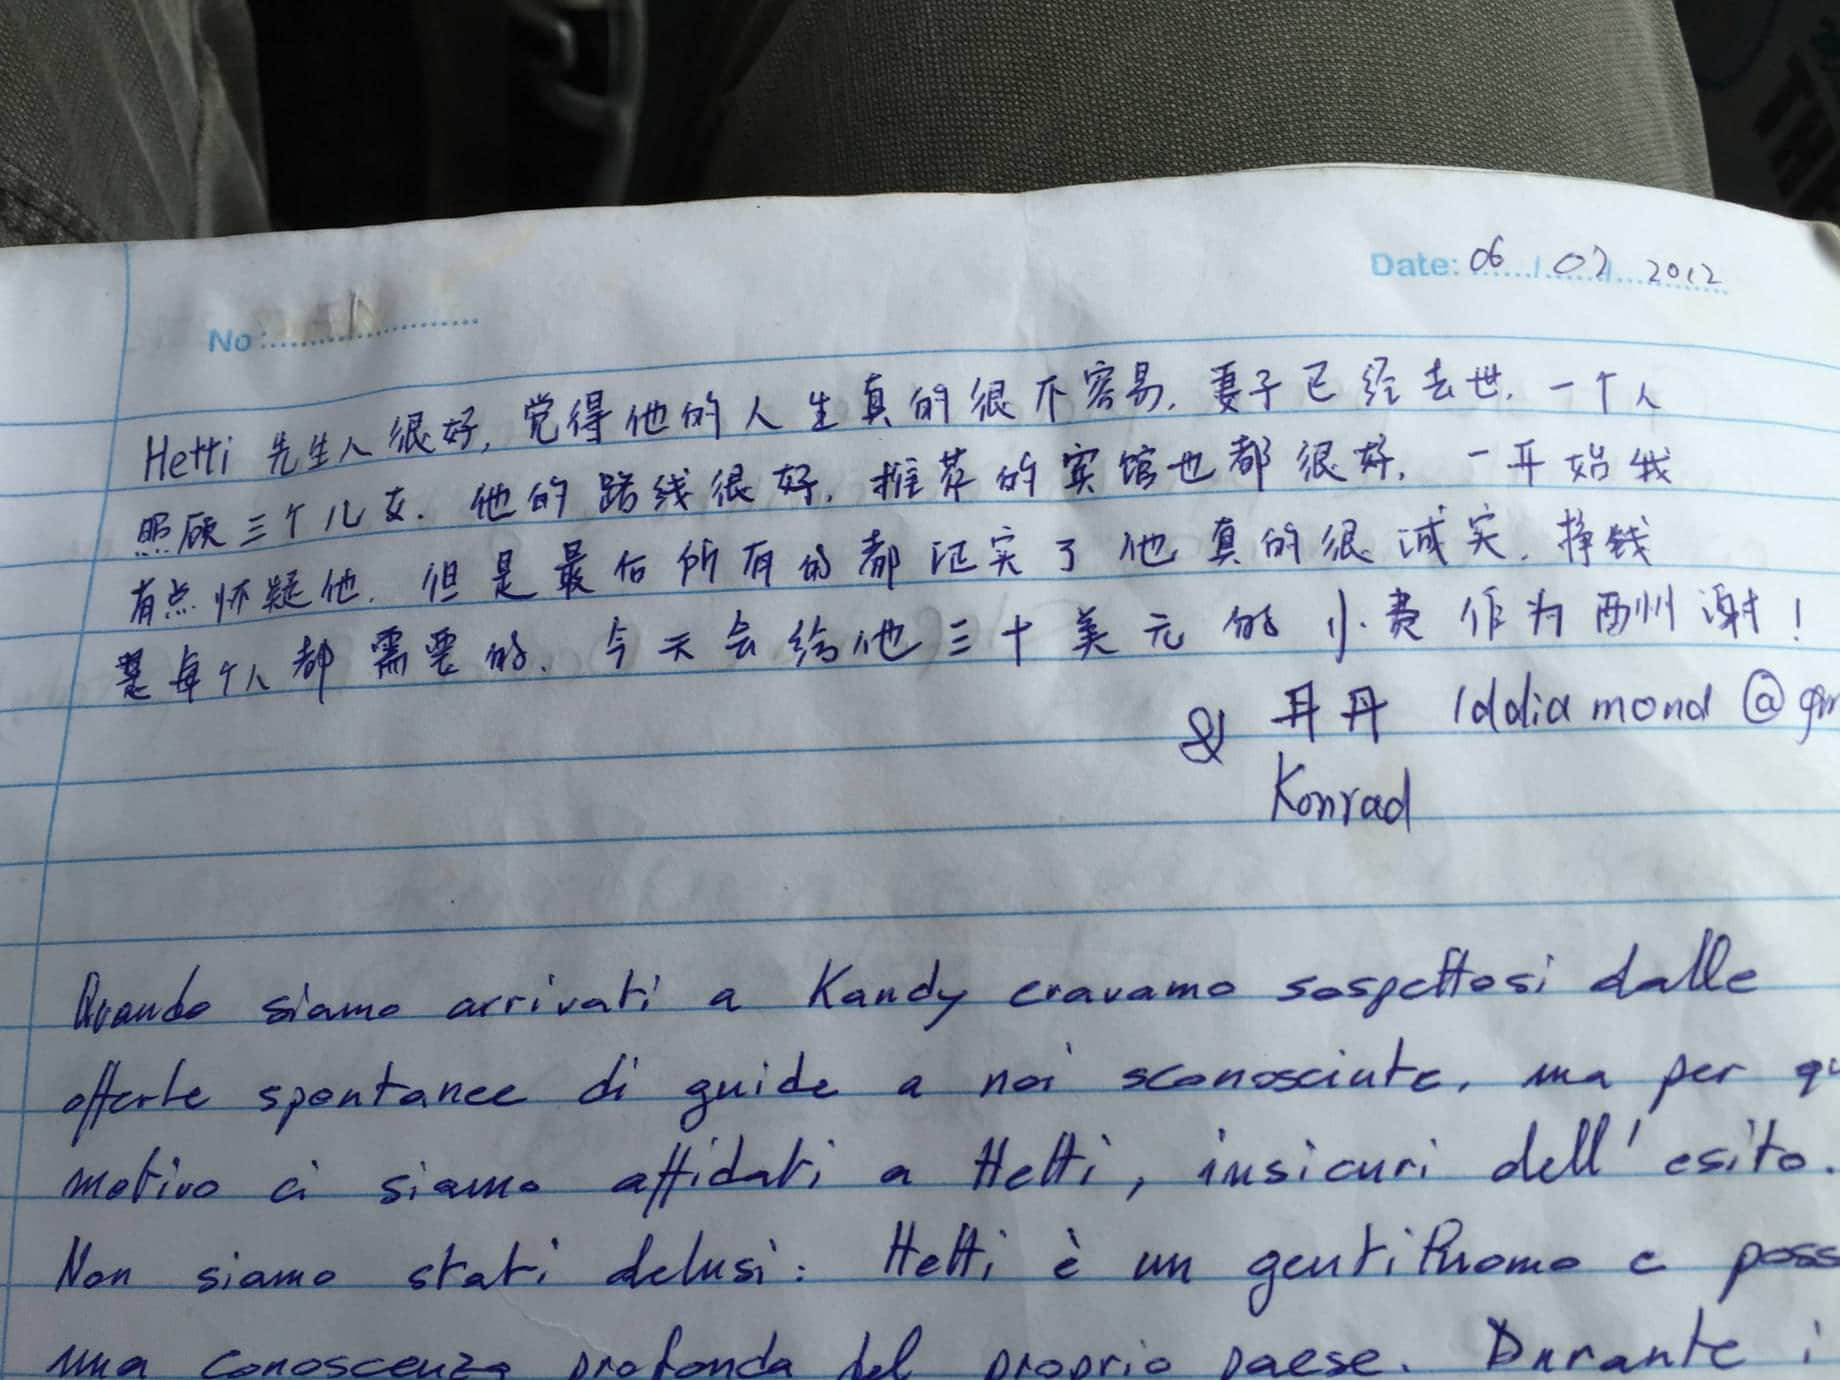 Date: 06 / 07 / 2012
No:
Hetti 先生人很好, 觉得他的人生真的很不容易, 妻子已经去世, 一个人
照顾三个儿女. 他的路线很好, 推荐的宾馆也都很好, 一开始我
有点怀疑他, 但是最后所有的都证实了他真的很诚实, 挣钱
是每个人都需要的, 今天会给他三十美元的小费作为酬谢!
& 丹丹 1ddiamond@gm
Konrad
Quando siamo arrivati a Kandy eravamo sospettosi dalle
offerte spontanee di guide a noi sconosciute, ma per qu
motivo ci siamo affidati a Hetti, insicuri dell'esito.
Non siamo stati delusi: Hetti è un gentiluomo e poss
una conoscenza profonda del proprio paese. Durante i